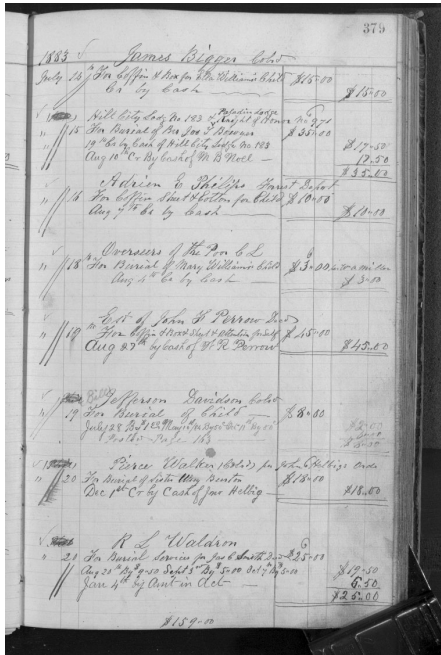 379
1883 James Bigger Cold
July 14 For Coffin & Box for Wm Williams Child $15-00
Cr by Cash $15-00
Hill City Lodg No 183 & Paladin Lodge Knight of Honor No 
" 15 For Burial of Bro Jos Bowen $35-00
19th Cr by Cash of Hill City Lodge No 183 $17-50
Aug 10th Cr By Cash of M B Noel 17.50
$35-00
Adrien E Philips Forrest Depot
" 16 For Coffin Sheet & Cotton for Child $10-00
Aug Cr by Cash $10-00
Overseers of the Poor C L
" 18 For Burial of Mary Williams Child $3-00
Aug 4th Cr by Cash $3-00
Est of John Perrow Decd
" 19 For Coffin & Box & Attention for Self $45-00
Aug 27th by Cash of R Perrow $45-00
Jefferson Davidson Cold
" 19 For Burial of Child $8-00
July 28
Page
Pierce Walker (Cold) pr John Helbigs Order
" 20 For Burial of Sister $18-00
Dec 1st Cr by Cash of Jno Helbig $18-00
R L Waldron
" 20 For Burial Service for Smith $25-00
Aug 20th By $9-50 Sept 3rd By $5-00 Oct 7th By $5-00 $19-50
Jan 4th by Amt in Act 5.50
$25-00
$159-00